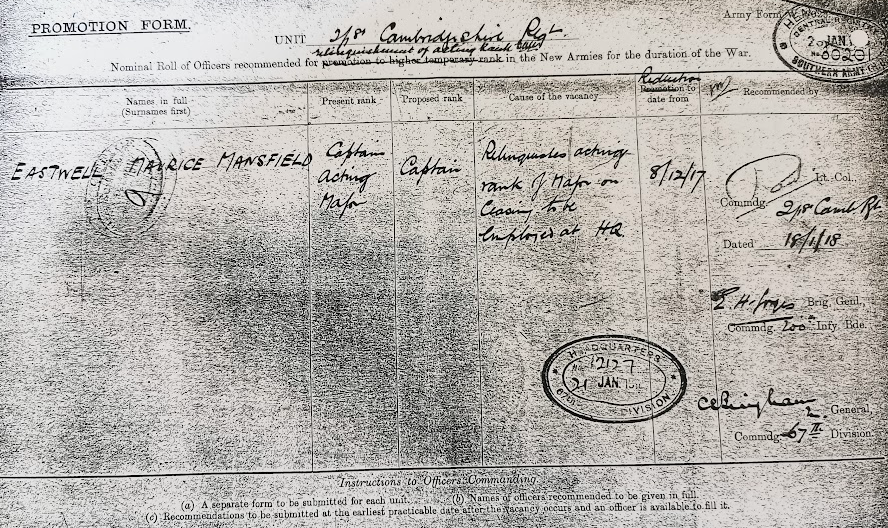 PROMOTION FORM.
Army Form
UNIT 2/8th Cambridgeshire Regt.
relinquishment of acting rank
Nominal Roll of Officers recommended for promotion to higher temporary rank in the New Armies for the duration of the War.
Names in full
(Surnames first)
Present rank
Proposed rank
Cause of the vacancy
Reduction
Promotion to
date from
Recommended by
EASTWELL MAURICE MANSFIELD
Captain
acting
Major
Captain
Relinquishes acting
rank of Major on
ceasing to be
employed at HQ.
8/12/17
Lt. Col.
Commdg. 2/8 Camb Rt.
Dated 18/1/18
Brig. Genl.,
Commdg. 200th Infy. Bde.
General,
Commdg. 67th Division.
HEADQUARTERS
12127
21 JAN
DIVISION
SOUTHERN ARMY
JAN.
Instructions to Officers Commanding.
(a) A separate form to be submitted for each unit. (b) Names of officers recommended to be given in full.
(c) Recommendations to be submitted at the earliest practicable date after the vacancy occurs and an officer is available to fill it.